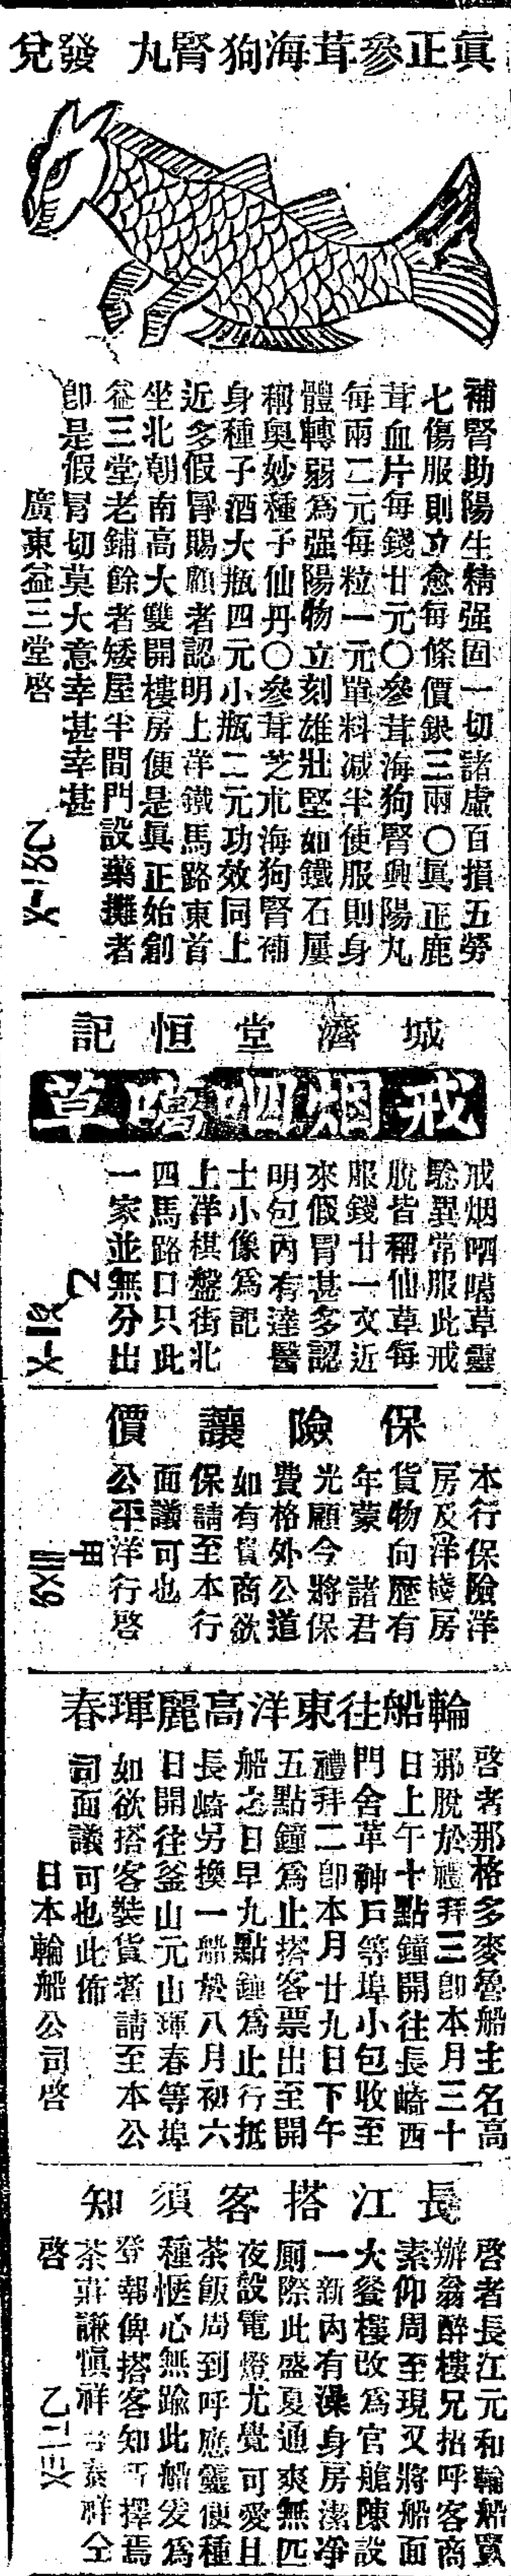 眞正參茸海狗腎丸　發兌
補腎助陽生精强固一切諸虛百損五勞
七傷服則立愈每條價銀三兩〇眞正鹿
茸血片每錢廿元〇參茸海狗腎興陽丸
每兩二元每粒一元單料减半使服則身
體轉弱爲强陽物立刻雄壯堅如鐵石屢
稱奧妙種子仙丹〇參茸芝朮海狗腎補
身種子酒大瓶四元小瓶二元功效同上
近多假冒賜顧者認明上洋鐵馬路東首
坐北朝南高大雙開樓房便是眞正始創
益三堂老鋪餘者矮屋半間門設藥攤者
卽是假冒切莫大意幸甚幸甚
廣東益三堂啓
城濟堂恒記
戒烟呬噶草
戒烟呬噶草靈
驗異常服此戒
脫皆稱仙草每
服錢廿一文近
來假冒甚多認
明包內有達醫
士小像爲記
上洋棋盤街北
四馬路口只此
一家並無分出
保險讓價
本行保險洋
房及洋棧房
貨物向歷有
年蒙　諸君
光顧今將保
費格外公道
如有貴商欲
保請至本行
面議可也
公平洋行啓
輪船往東洋高麗琿春
啓者那格多麥魯船主名高
那脫於禮拜三卽本月三十
日上午十點鐘開往長崎西
門舍革神戶等埠小包收至
禮拜二卽本月廿九日下午
五點鐘爲止搭客票出至開
船之日早九點鐘爲止行抵
長崎另換一船於八月初六
日開往釜山元山琿春等埠
如欲搭客裝貨者請至本公
司面議可也此佈
日本輪船公司啓
長江搭客須知
啓者長江元和輪船買
辦翁醉樓兄招呼客商
素仰周至現又將船面
大餐樓改爲官艙陳設
一新內有澡身房潔凈
厠際此盛夏通爽無匹
夜設電燈尤覺可愛且
茶飯周到呼應靈便種
種愜心無踰此船爰爲
登報俾搭客知所擇焉
茶莊謙愼祥　泰祥仝
啓